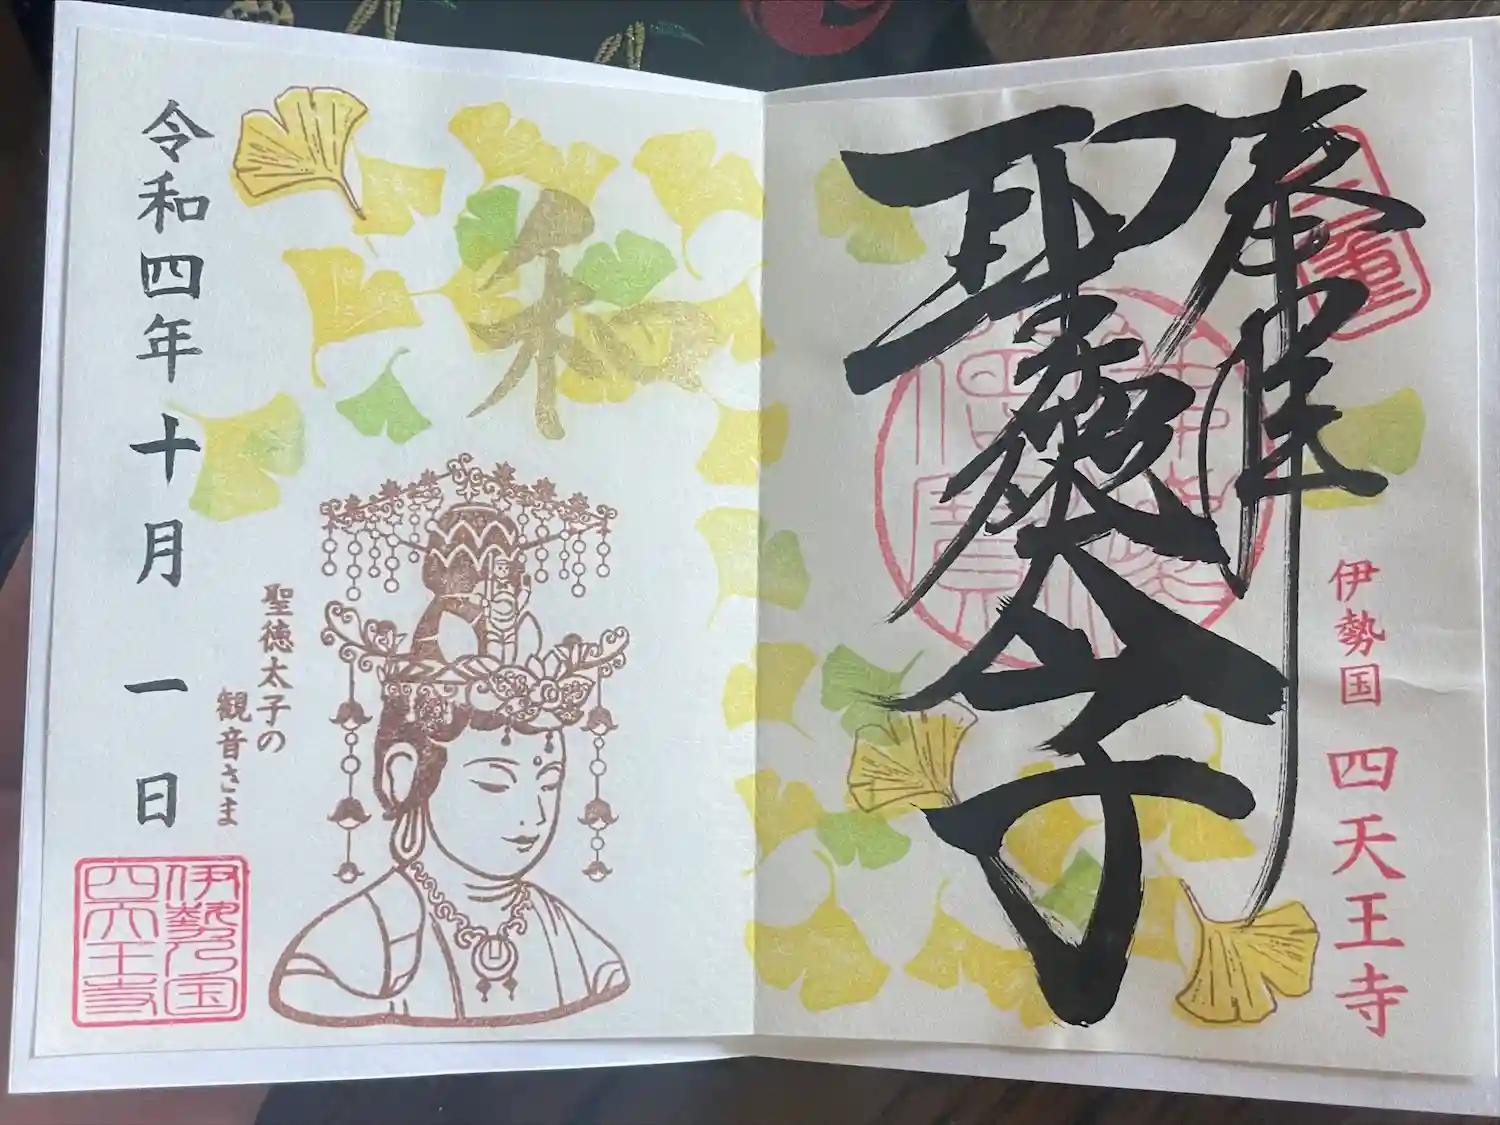 奉拝
聖徳太子
伊勢国 四天王寺
和
令和四年十月一日
聖徳太子の
観音さま
伊勢乃国
四天王寺